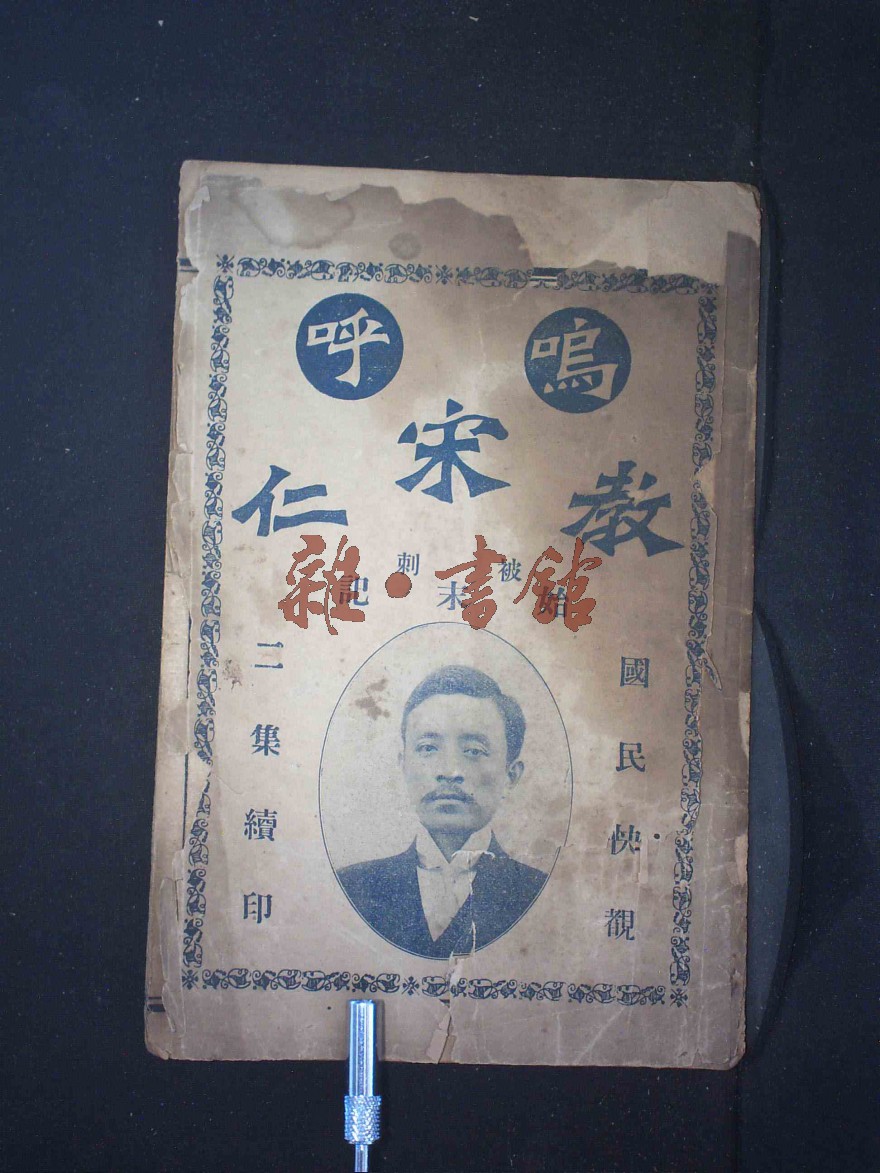 嗚呼
宋教仁
被刺
始末記
國民快觀
二集續印
雜·書館